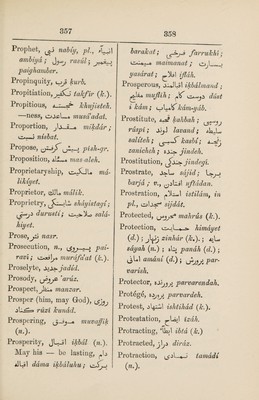 357
Prophet, نبی nabíy, pl., انبیا
ambiyá ; رسول rasúl ; پیغمبر
paighamber.
Propinquity, قرب ḳurb.
Propitiation, تکفیر takfír (k.).
Propitious, خجسته khujisteh.
—ness, مساعدت musá'adat.
Proportion, مقدار miḳdár ;
نسبت nisbat.
Propose, پیش گرفتن písh-gr.
Proposition, مسئله mas aleh.
Proprietaryship, مالکیت má-
likíyet.
Proprietor, مالک málik.
Propriety, شایستگی sháyistegí ;
درستی durustí ; صلاحیت salá-
híyet.
Prose, نثر nasr.
Prosecution, n., پیروی pai-
raví ; مرافعات muráfa'at (k.).
Proselyte, جدید jadíd.
Prosody, عروض 'arúz.
Prospect, منظر manzar.
Prosper (him, may God), روزی
کناد rúzí kunád.
Prospering, موفق muraffiḳ
(n.).
Prosperity, اقبال iḳbál (n.).
May his — be lasting, دام
اقباله dáma iḳbáluhu ; برکت
358
barakat ; فرخی farrukhí ;
میمنت maimanat ; یسارت
yasárat ; افلاح ifláh.
Prosperous, اقبالمند iḳbálmand ;
مفلح muflih ; دوست کام dúst
i kám ; کامیاب kám-yáb.
Prostitute, قحبه ḳahbah ; روسپی
rúspí ; لوند lavand ; سلیطه
salíteh ; کسبی kasbí ; زنیچه
zanícheh ; جنده jindeh.
Prostitution, جندگی jindegí.
Prostrate, ساجد sájid ; برجا
barjá ; v., افتادن uftádan.
Prostration, استلام istilám, in
pl., سجدات sijdát.
Protected, محروس mahrús (k.).
Protection, حمایت himáyet
(d.) ; زنهار zinhár (k.). ; سایه
sáyah (n.) ; پناه panáh (d.) ;
امانی amání (d.) ; پرورش par-
varish.
Protector, پرورنده parvarandah.
Protégé, پرورده parvardeh.
Protest, اشتهاد ishtihád (k.).
Protestation, ایضاح izáh.
Protracting, ابطا ibtá (k.)
Protracted, دراز diráz.
Protraction, تمادی tamádí
(n.).